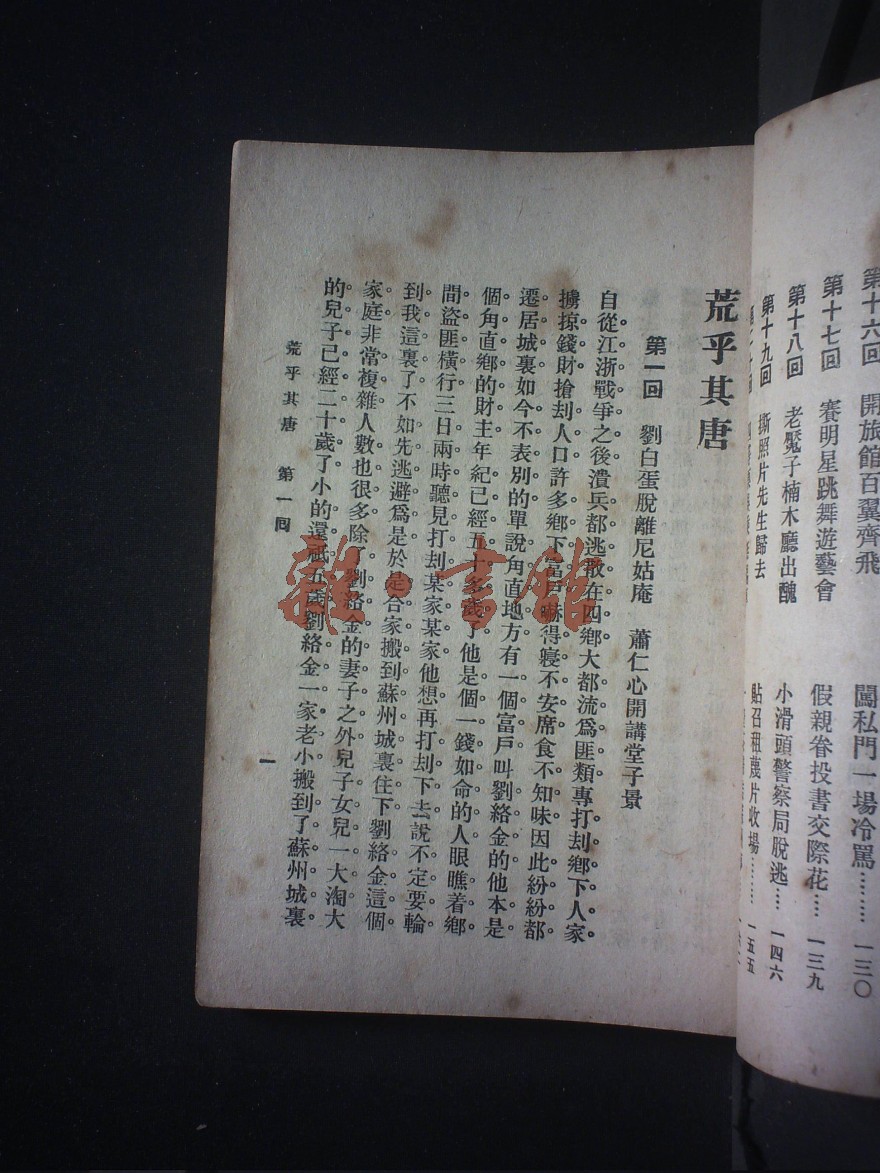 第十六回　開旅館百翼齊飛　闖私門一場冷罵………一三〇
第十七回　賽明星跳舞遊藝會　假親眷投書交際花…一三九
第十八回　老魘子楠木廳出醜　小滑頭警察局脫逃…一四六
第十九回　撕照片先生歸去　貼召租蔑片收場………一五五
荒乎其唐
第一回　劉白蛋脫離尼姑庵　蕭仁心開講堂子景
自從江浙戰爭之後。潰兵都逃散在四鄉。大都流爲匪類。專打刦鄉下人家。
擄掠錢財。搶刦人口。許多鄉下富戶。嚇得寢不安席。食不知味。因此紛紛都
遷居城裏。如今不表別的。單說角直地方有一個富戶。叫劉絡金的。他本是
個角直鄉的財主。年紀已經五十多歲了。他是個一錢如命的人。眼瞧着鄉
間盜匪橫行。三日兩時聽見打刦某家某家。他想再打刦下去。說不定要輪
到我這裏了。不如先逃避爲是。於是合家搬到蘇州城裏住下。劉絡金這個
家庭非常複雜。人數也很多。除了劉絡金的妻子之外。兒子女兒一大淘。大
的兒子已經二十歲了。小的還祇五歲。劉絡金一家老小搬到了蘇州城裏。
荒乎其唐　第一回
一
雜·書館